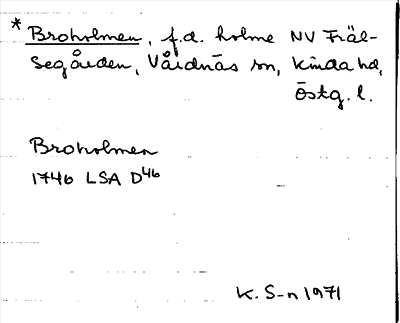 * Broholmen, f.d. holme NV Fräl-
segården, Vårdnäs sn, Kinda hd,
Östg. l.
Broholmen
1746 LSA D46
K. S-n 1971